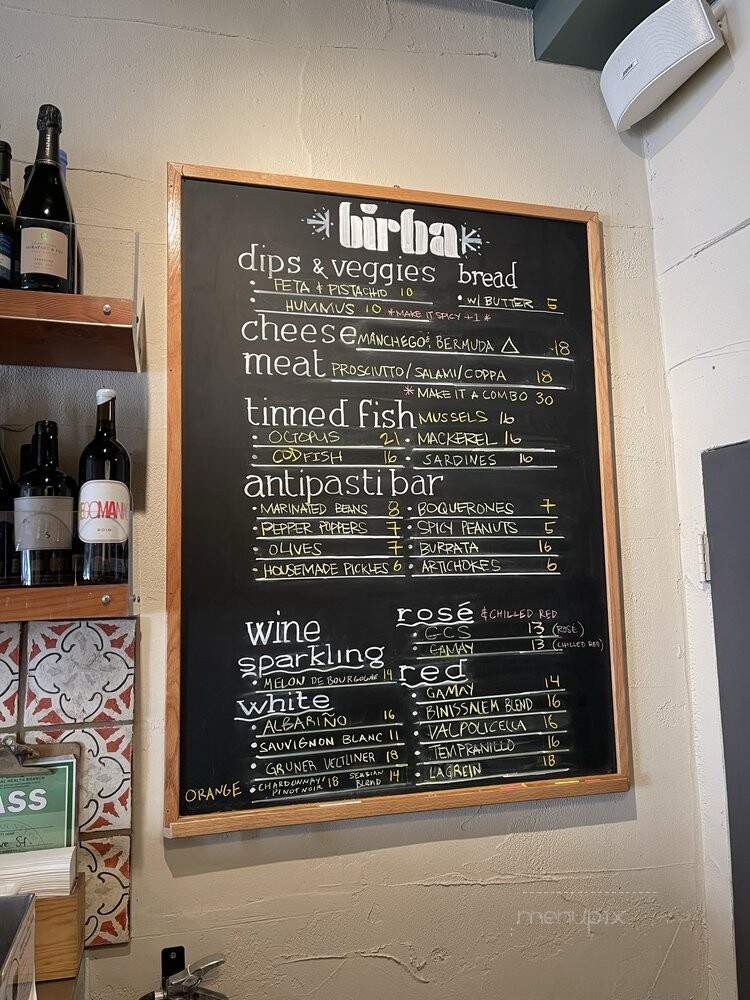 birba
dips & veggies
FETA & PISTACHIO 10
HUMMUS 10 *MAKE IT SPICY +1*
bread
W/ BUTTER 5
cheese MANCHEGO, BERMUDA △ 18
meat PROSCIUTTO/SALAMI/COPPA 18
*MAKE IT A COMBO 30
tinned fish MUSSELS 16
OCTOPUS 21 MACKEREL 16
CODFISH 16 SARDINES 16
antipasti bar
MARINATED BEANS 8 BOQUERONES 7
PEPPER POPPERS 7 SPICY PEANUTS 5
OLIVES 7 BURRATA 16
HOUSEMADE PICKLES 6 ARTICHOKES 6
wine
sparkling
MELON DE BOURGOGNE 14
white
ALBARIÑO 16
SAUVIGNON BLANC 11
GRUNER VELTLINER 18
ORANGE CHARDONNAY/PINOT NOIR 18 SERBIAN BLEND 14
rosé & CHILLED RED
GCS 13 (ROSE)
GAMAY 13 (CHILLED RED)
red
GAMAY 14
BINISSALEM BLEND 16
VALPOLICELLA 16
TEMPRANILLO 16
LAGREIN 18
ASS
menupix